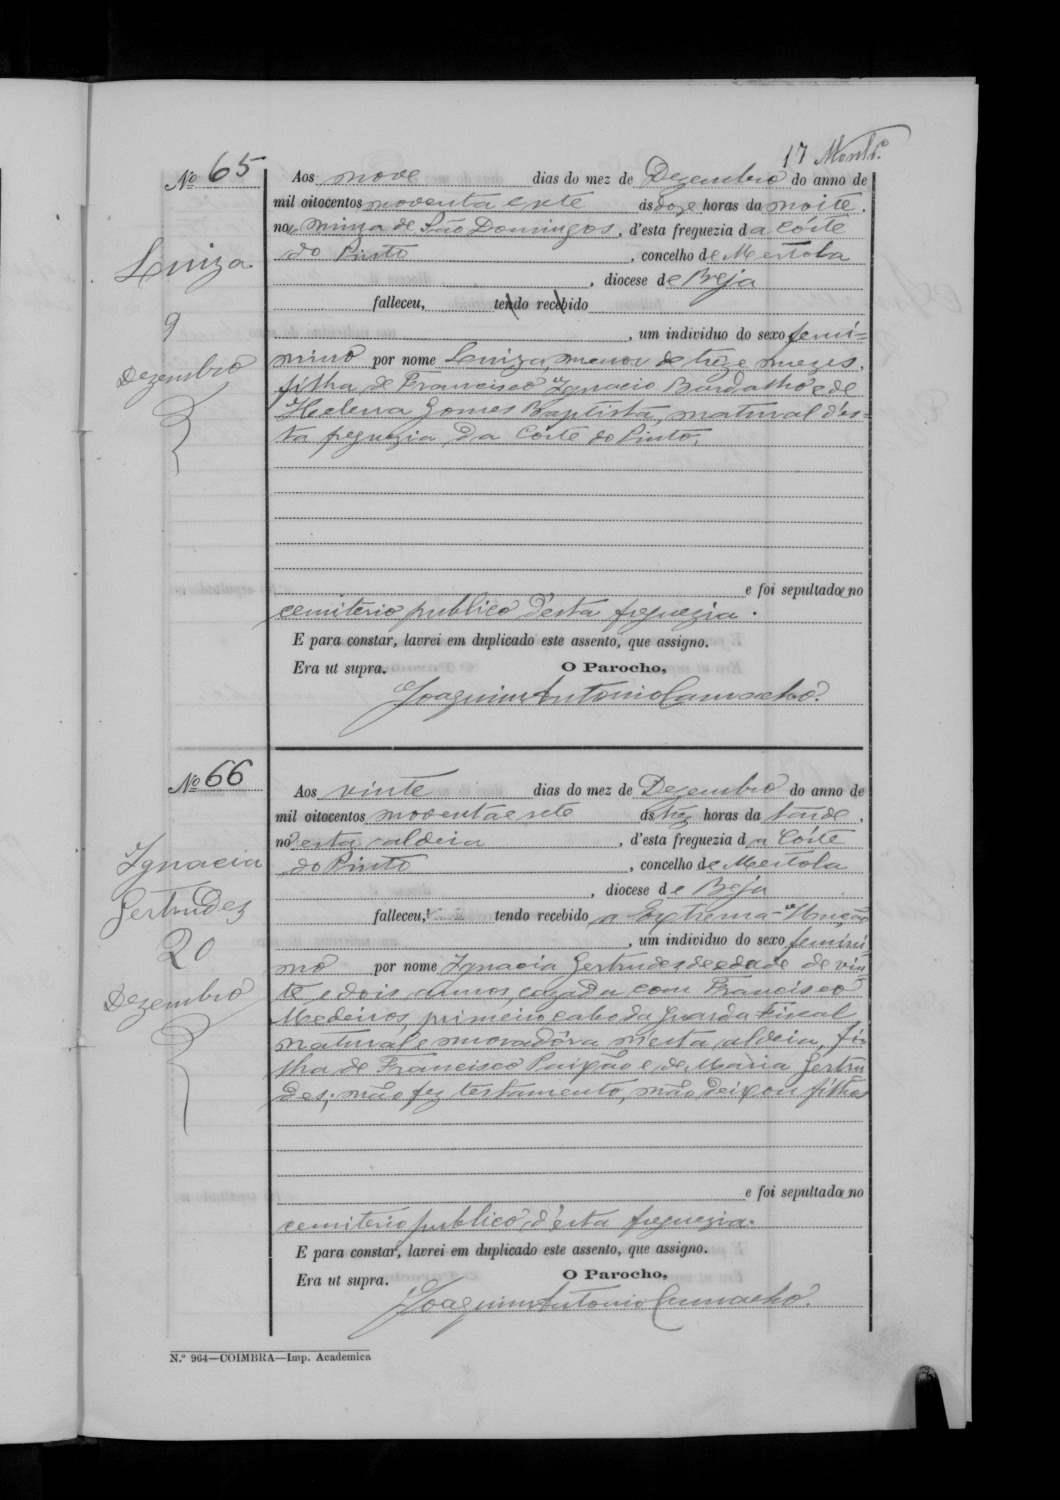 17
Nº 65
Aos nove dias do mez de Dezembro do anno de
mil oitocentos noventa e sete ás doze horas da noite,
na mina de São Domingos, d'esta freguezia da Côrte
do Pinto, concelho de Mertola
, diocese de Beja
falleceu, tendo recebido
, um individuo do sexo femi=
nino por nome Luiza, menor de treze mezes,
filha de Francisco Ignacio Bardalho e de
Helena Gomes Baptista, natural d'es=
ta freguezia da Côrte do Pinto.
e foi sepultada no
cemiterio publico d'esta freguezia.
E para constar, lavrei em duplicado este assento, que assigno.
Era ut supra. O Parocho,
Joaquim Antonio Camacho.
Luiza
9
Dezembro
Nº 66
Aos vinte dias do mez de Dezembro do anno de
mil oitocentos noventa e sete ás trez horas da tarde,
n'esta aldeia, d'esta freguezia da Côrte
do Pinto, concelho de Mertola
, diocese de Beja
falleceu, tendo recebido a Extrema-Uncção
, um individuo do sexo femini
no por nome Ignacia Gertrudes de edade de vin
te e dois annos, cazada com Francisco
Medeiros, primeiro cabo da Guarda Fiscal,
natural e moradôra n'esta aldeia, fi
lha de Francisco Paixão e de Maria Gertru
des; não fez testamento, não deixou filhos
e foi sepultada no
cemiterio publico d'esta freguezia.
E para constar, lavrei em duplicado este assento, que assigno.
Era ut supra. O Parocho,
Joaquim Antonio Camacho.
Ignacia
Gertrudes
20
Dezembro
N.º 964—COIMBRA—Imp. Academica